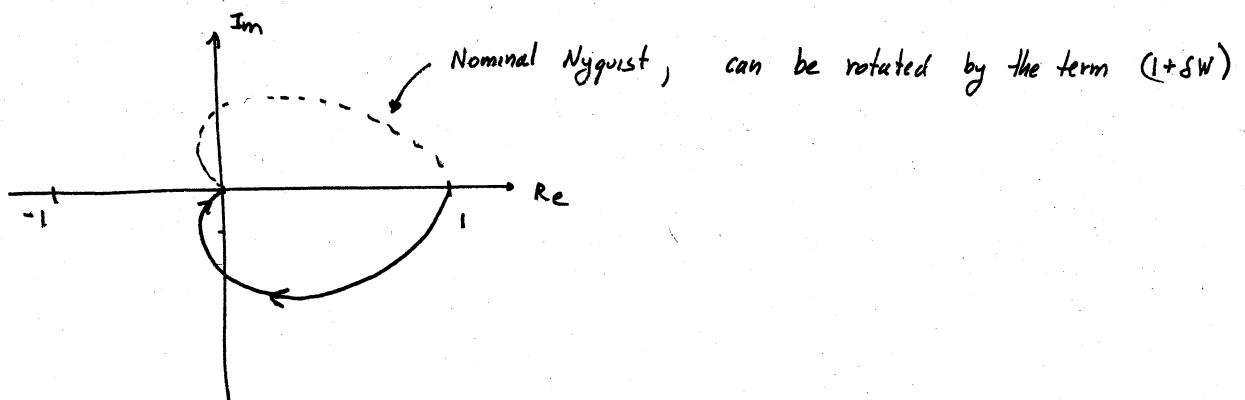 Im
Nominal Nyquist, can be rotated by the term (1+δW)
Re
-1
1